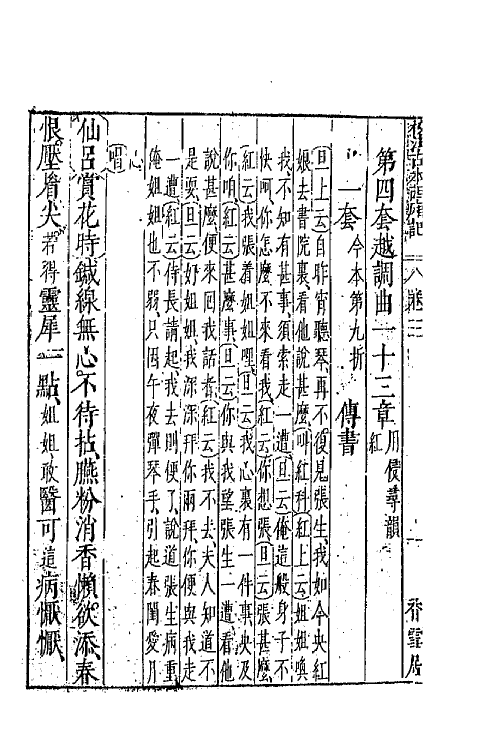 校注古本西廂記 卷三 香雪居
第四套越調曲一十三章 用侵尋韻 紅
一套 今本第九折 傳書
(旦上云)自昨宵聽琴、再不復見張生、我如今央紅
娘去書院裏看他說甚麼(叫紅科)(紅上云)姐姐喚
我、不知有甚事、須索走一遭(旦云)俺這般身子不
快呵、你怎麼不來看我(紅云)你想張(旦云)張甚麼、
(紅云)我張着姐姐哩(旦云)我心裏有一件事央及
你咱(紅云)甚麼事(旦云)你與我望張生一遭看他
說甚麼、便來回我話者(紅云)我不去、夫人知道不
是耍(旦云)好姐姐、我深深拜你兩拜、你便與我走
一遭(紅云)侍長請起、我去則便了、說道張生病重、
俺姐姐也不弱、只因午夜彈琴手、引起春閨愛月
心(唱)
仙呂賞花時鍼線無心不待拈、臙粉消香懶欲添、春
恨壓眉尖、若得靈犀一點、姐姐敢醫可這病懨懨、